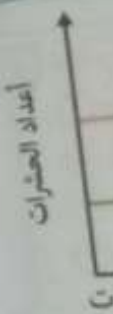 أعداد الحشرات